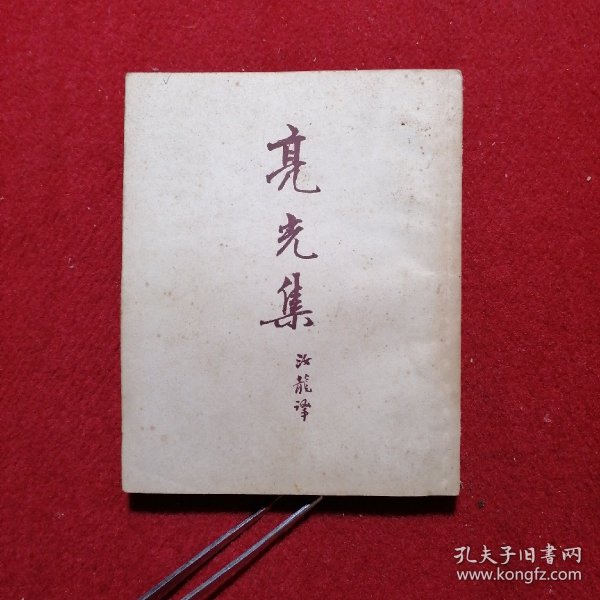 亮光集
汝龍譯
孔夫子旧書网
www.kongfz.com